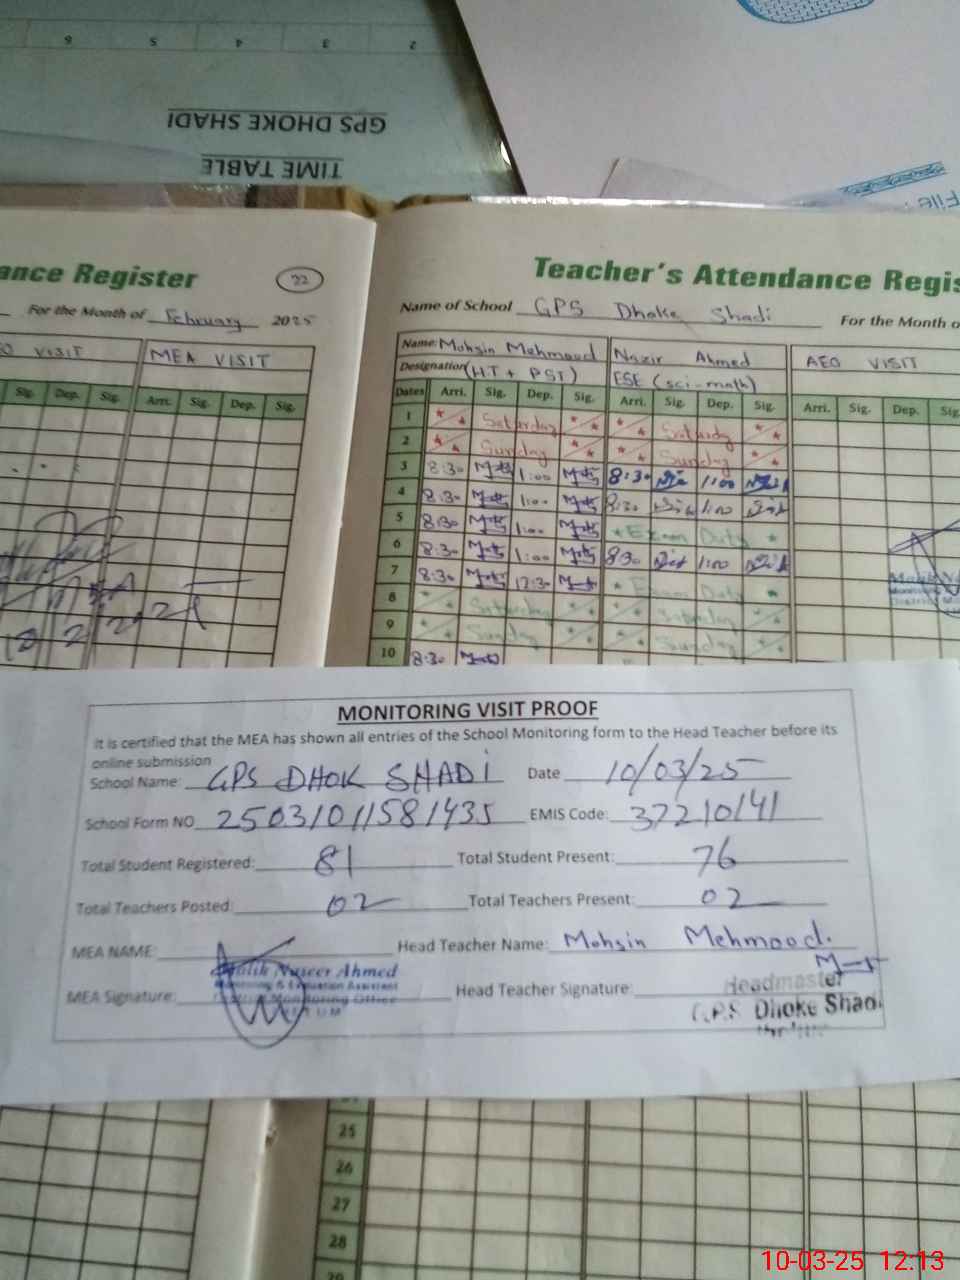 6 5 4 3 2
GPS DHOKE SHADI
TIME TABLE
File :
ance Register
22
For the Month of February 2025
O VISIT
MEA VISIT
Sig. Dep. Sig. Arri. Sig. Dep. Sig.
Teacher's Attendance Regis
Name of School GPS Dhoke Shadi
For the Month o
Name: Mohsin Mehmood Nazir Ahmed AEO VISIT
Designation (HT + PST) ESE (sci-math)
Dates Arri. Sig. Dep. Sig. Arri. Sig. Dep. Sig. Arri. Sig. Dep. Sig
1 Saturday Saturday
2 Sunday Sunday
3 8:30 1:00 8:30 1:00
4 8:30 1:00 8:30 1:00
5 8:30 1:00 Exam Duty
6 8:30 1:00 8:30 1:00
7 8:30 12:30 Exam Duty
8 Saturday Saturday
9 Sunday Sunday
10 8:30
MONITORING VISIT PROOF
It is certified that the MEA has shown all entries of the School Monitoring form to the Head Teacher before its
online submission
School Name: GPS DHOK SHADI Date 10/03/25
School Form NO 25031011581435 EMIS Code: 37210141
Total Student Registered: 81 Total Student Present: 76
Total Teachers Posted: 02 Total Teachers Present: 02
MEA NAME: Head Teacher Name: Mohsin Mehmood.
Malik Naseer Ahmed
Monitoring & Evaluation Assistant
District Monitoring Office
MEA Signature: Head Teacher Signature:
Headmaster
G.P.S Dhoke Shadi
25
26
27
28
29
10-03-25 12:13